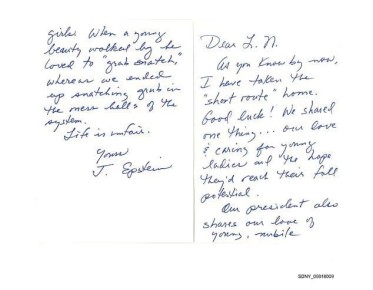 Dear L. N.
As you know by now,
I have taken the
"short route" home.
Good luck! We shared
one thing... our love
& caring for young
ladies and the hope
they'd reach their full
potential.
Our president also
shares our love of
young, nubile
girls. When a young
beauty walked by he
loved to "grab snatch,"
whereas we ended
up snatching grub in
the mess halls of the
system.
Life is unfair.
Yours
J. Epstein
SDNY_00018000